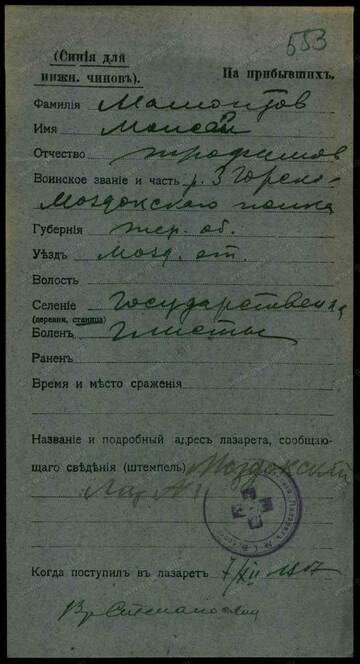 553
(Синія для
нижн. чиновъ).
На прибывшихъ.
Фамилія Мамонтов
Имя Моисей
Отчество Трофимов
Воинское званіе и часть р. 3 Горско-
Моздокского полка
Губернія Тер. об.
Уѣздъ Мозд. от.
Волость
Селеніе Государственная
(деревня, станица)
Боленъ глисты
Раненъ
Время и мѣсто сраженія
Названіе и подробный адресъ лазарета, сообщаю-
щаго свѣдѣнія (штемпель) Моздокский
Лаз № 1
Когда поступилъ въ лазаретъ 7/XII 1917
Вр.